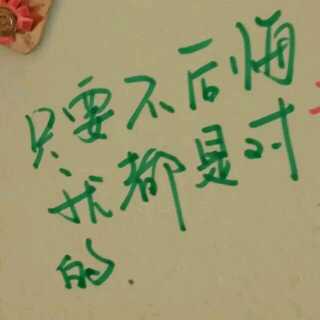 只要不后悔
我都是对
的.